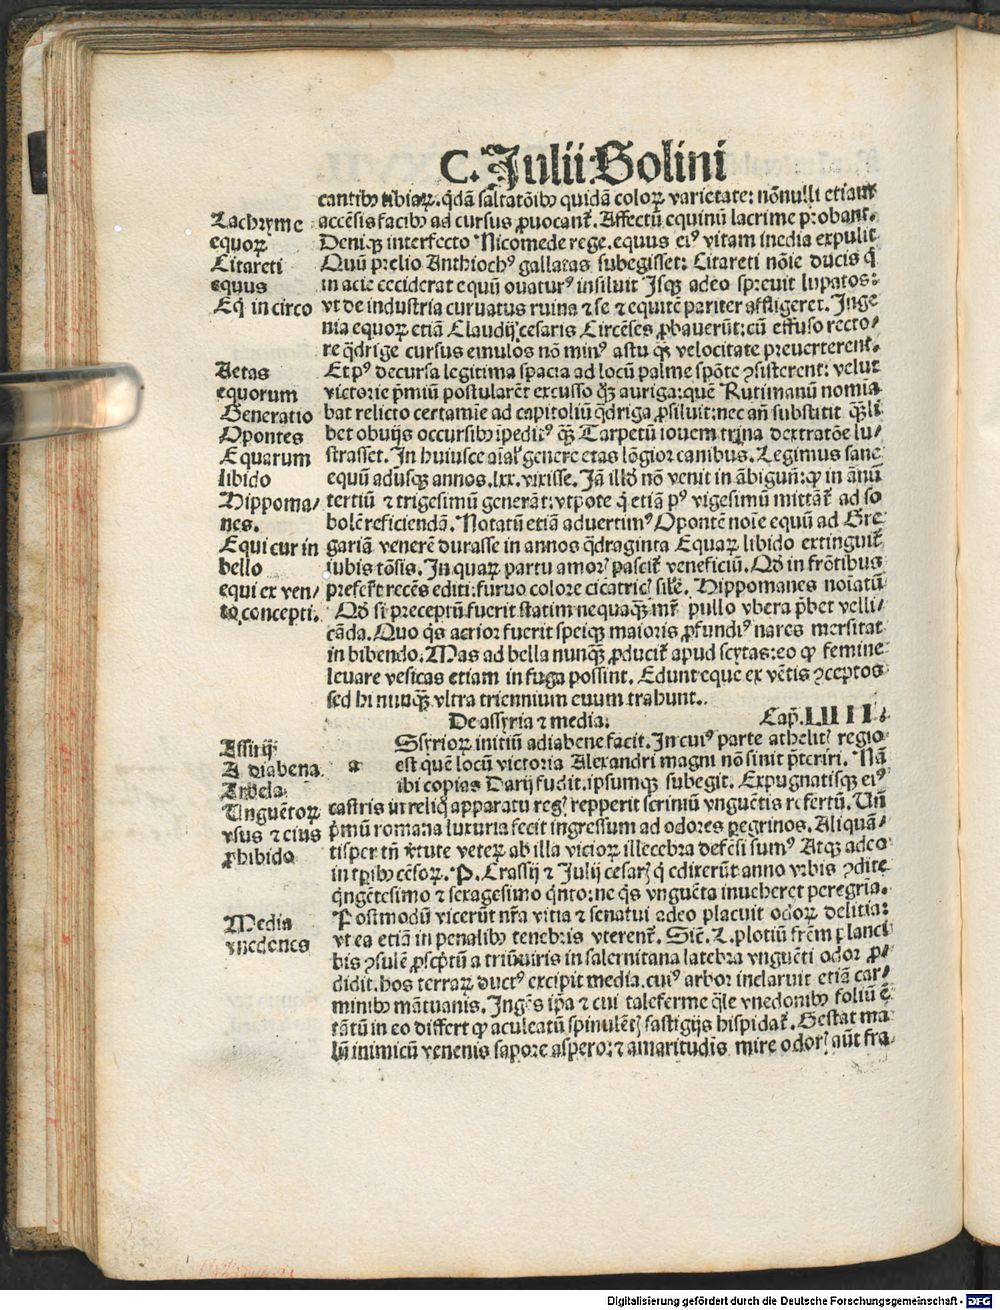 C. Julii Solini
cantibꝰ tibiaꝝ. q̇dā saltatōibꝰ quidā coloꝝ varietate: nōnulli etiam
accēsis facibꝰ ad cursus ꝓuocant᷑. Affectū equinū lacrime probant.
Deniqꝫ interfecto Nicomede rege. equus eiꝰ vitam inedia expulit
Quū prelio Anthiochꝰ gallatas subegisset: Citareti nōie ducis q̇
in acie ceciderat equū ouaturꝰ insiluit Isqꝫ adeo spreuit lupatos:
vt de industria curuatus ruina ⁊ se ⁊ equitē pariter affligeret. Inge
nia equoꝝ etiā Claudij cesaris Circēses ꝓbauerūt: cū effuso recto/
re q̇drige cursus emulos nō minꝰ astu qꝫ velocitate preuerterent.
Et pꝰ decursa legitima spacia ad locū palme spōte ꝯsisterent: velut
victorie p̄miū postularēt excusso qꝫ̄ auriga: quē Rutimanū nomīa
bat relicto certamīe ad capitoliū q̇driga ꝓsiluit: nec añ substitit qꝫ̄li
bet obuijs occursibꝰ īpeditꝰ qꝫ̄ Tarpetū iouem trina dextratōe lu/
strasset. In huiusce aīal᷑ genere etas lōgior canibus. Legimus sane
equū adusqꝫ annos .lxx. vixisse. Jā illd̄ nō venit in ābiguū: ꝙ in ānū
tertiū ⁊ trigesimū generāt: vtpote q̇ etiā pꝰ vigesimū mittāt᷑ ad so
bolē reficiendā. Notatū etiā aduertimꝰ Opontē noīe equū ad Gre
gariā venerē durasse in annos q̇draginta Equaꝝ libido extinguit᷑
iubis tōsis. In quaꝝ partu amorꝭ pascit᷑ veneficiū. Qd̄ in frōtibus
prefert recēs editi: furuo colore cicatricꝭ sil̄e. Hippomanes noīatū
Qd̄ si preceptū fuerit statim nequaqꝫ̄ mr̄ pullo vbera p̄bet velli/
cāda. Quo q̇s acrior fuerit speiqꝫ maioris ꝓfundiꝰ nares mersitat
in bibendo. Mas ad bella nunqꝫ̄ ꝓducit᷑ apud scytas: eo ꝙ femine
leuare vesicas etiam in fuga possint. Edunt eque ex vētis ꝯceptos
sed hi nunqꝫ̄ vltra triennium euum trahunt.
De assyria ⁊ media. Cap̄. LIIII.
a Ssyrioꝝ initiū adiabene facit. In cuiꝰ parte athelitꝭ regio
est quē locū victoria Alexandri magni nō sinit p̄teriri. Nā
ibi copias Darij fudit. ipsumqꝫ subegit. Expugnatisqꝫ eiꝰ
castris in reliq̇ apparatu regꝭ repperit scriniū vnguētis refertū. Un̄
p̄mū romana luxuria fecit ingressum ad odores pegrinos. Aliquā/
tisper tn̄ v̇tute veteꝝ ab illa vicioꝝ illecebra defēsi sumꝰ Atqꝫ adeo
in tp̄ibꝰ cēsoꝝ. P. Crassij ⁊ Julij cesarꝭ q̇ edixerūt anno vrbis ꝯdite
q̇ngētesimo ⁊ sexagesimo q̇nto: ne q̇s vnguēta inueheret peregria.
Postmodū vicerūt nr̄a vitia ⁊ senatui adeo placuit odoꝝ delitia:
vt ea etiā in penalibꝰ tenebris vterent᷑. Sic̄. L. plotiū fr̄em planci
bis ꝯsulē ꝓscp̄tū a triūuiris in salernitana latebra vnguēti odor ꝓ/
didit. hos terraꝝ ductꝰ excipit media. cuiꝰ arbor inclaruit etiā car/
minibꝰ mātuanis. Ingēs ip̄a ⁊ cui tale ferme q̇le vnedonibꝰ foliū ē
tātū in eo differt ꝙ aculeatū spinulētꝭ fastigijs hispidat᷑. Gestat ma
lū inimicū venenis sapore aspero: ⁊ amaritudīs mire odorꝭ aūt fra
Lachryme
equoꝝ
Citareti
equus
Eq̇ in circo
Aetas
equorum
Generatio
Opontes
Equarum
libido
Hippoma/
nes.
Equi cur in
bello
equi ex ven/
to concepti.
Assirij
Adiabena
Arbela
Unguētoꝝ
vsus ⁊ eius
ꝓhibido
Media
vnedones
Digitalisierung gefördert durch die Deutsche Forschungsgemeinschaft - DFG